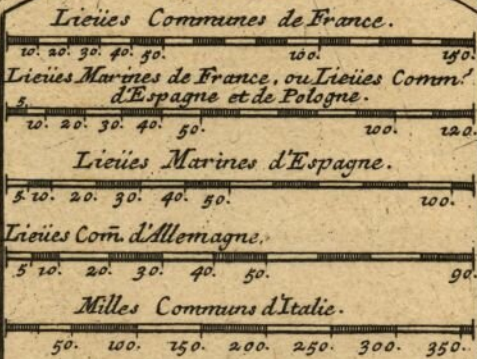 Lieües Communes de France.
10. 20. 30. 40. 50. 100. 150.
Lieües Marines de France, ou Lieües Comm.ˢ
d'Espagne et de Pologne.
5. 10. 20. 30. 40. 50. 100. 120.
Lieües Marines d'Espagne.
5. 10. 20. 30. 40. 50. 100.
Lieües Com̃. d'Allemagne.
5. 10. 20. 30. 40. 50. 90.
Milles Communs d'Italie.
50. 100. 150. 200. 250. 300. 350.